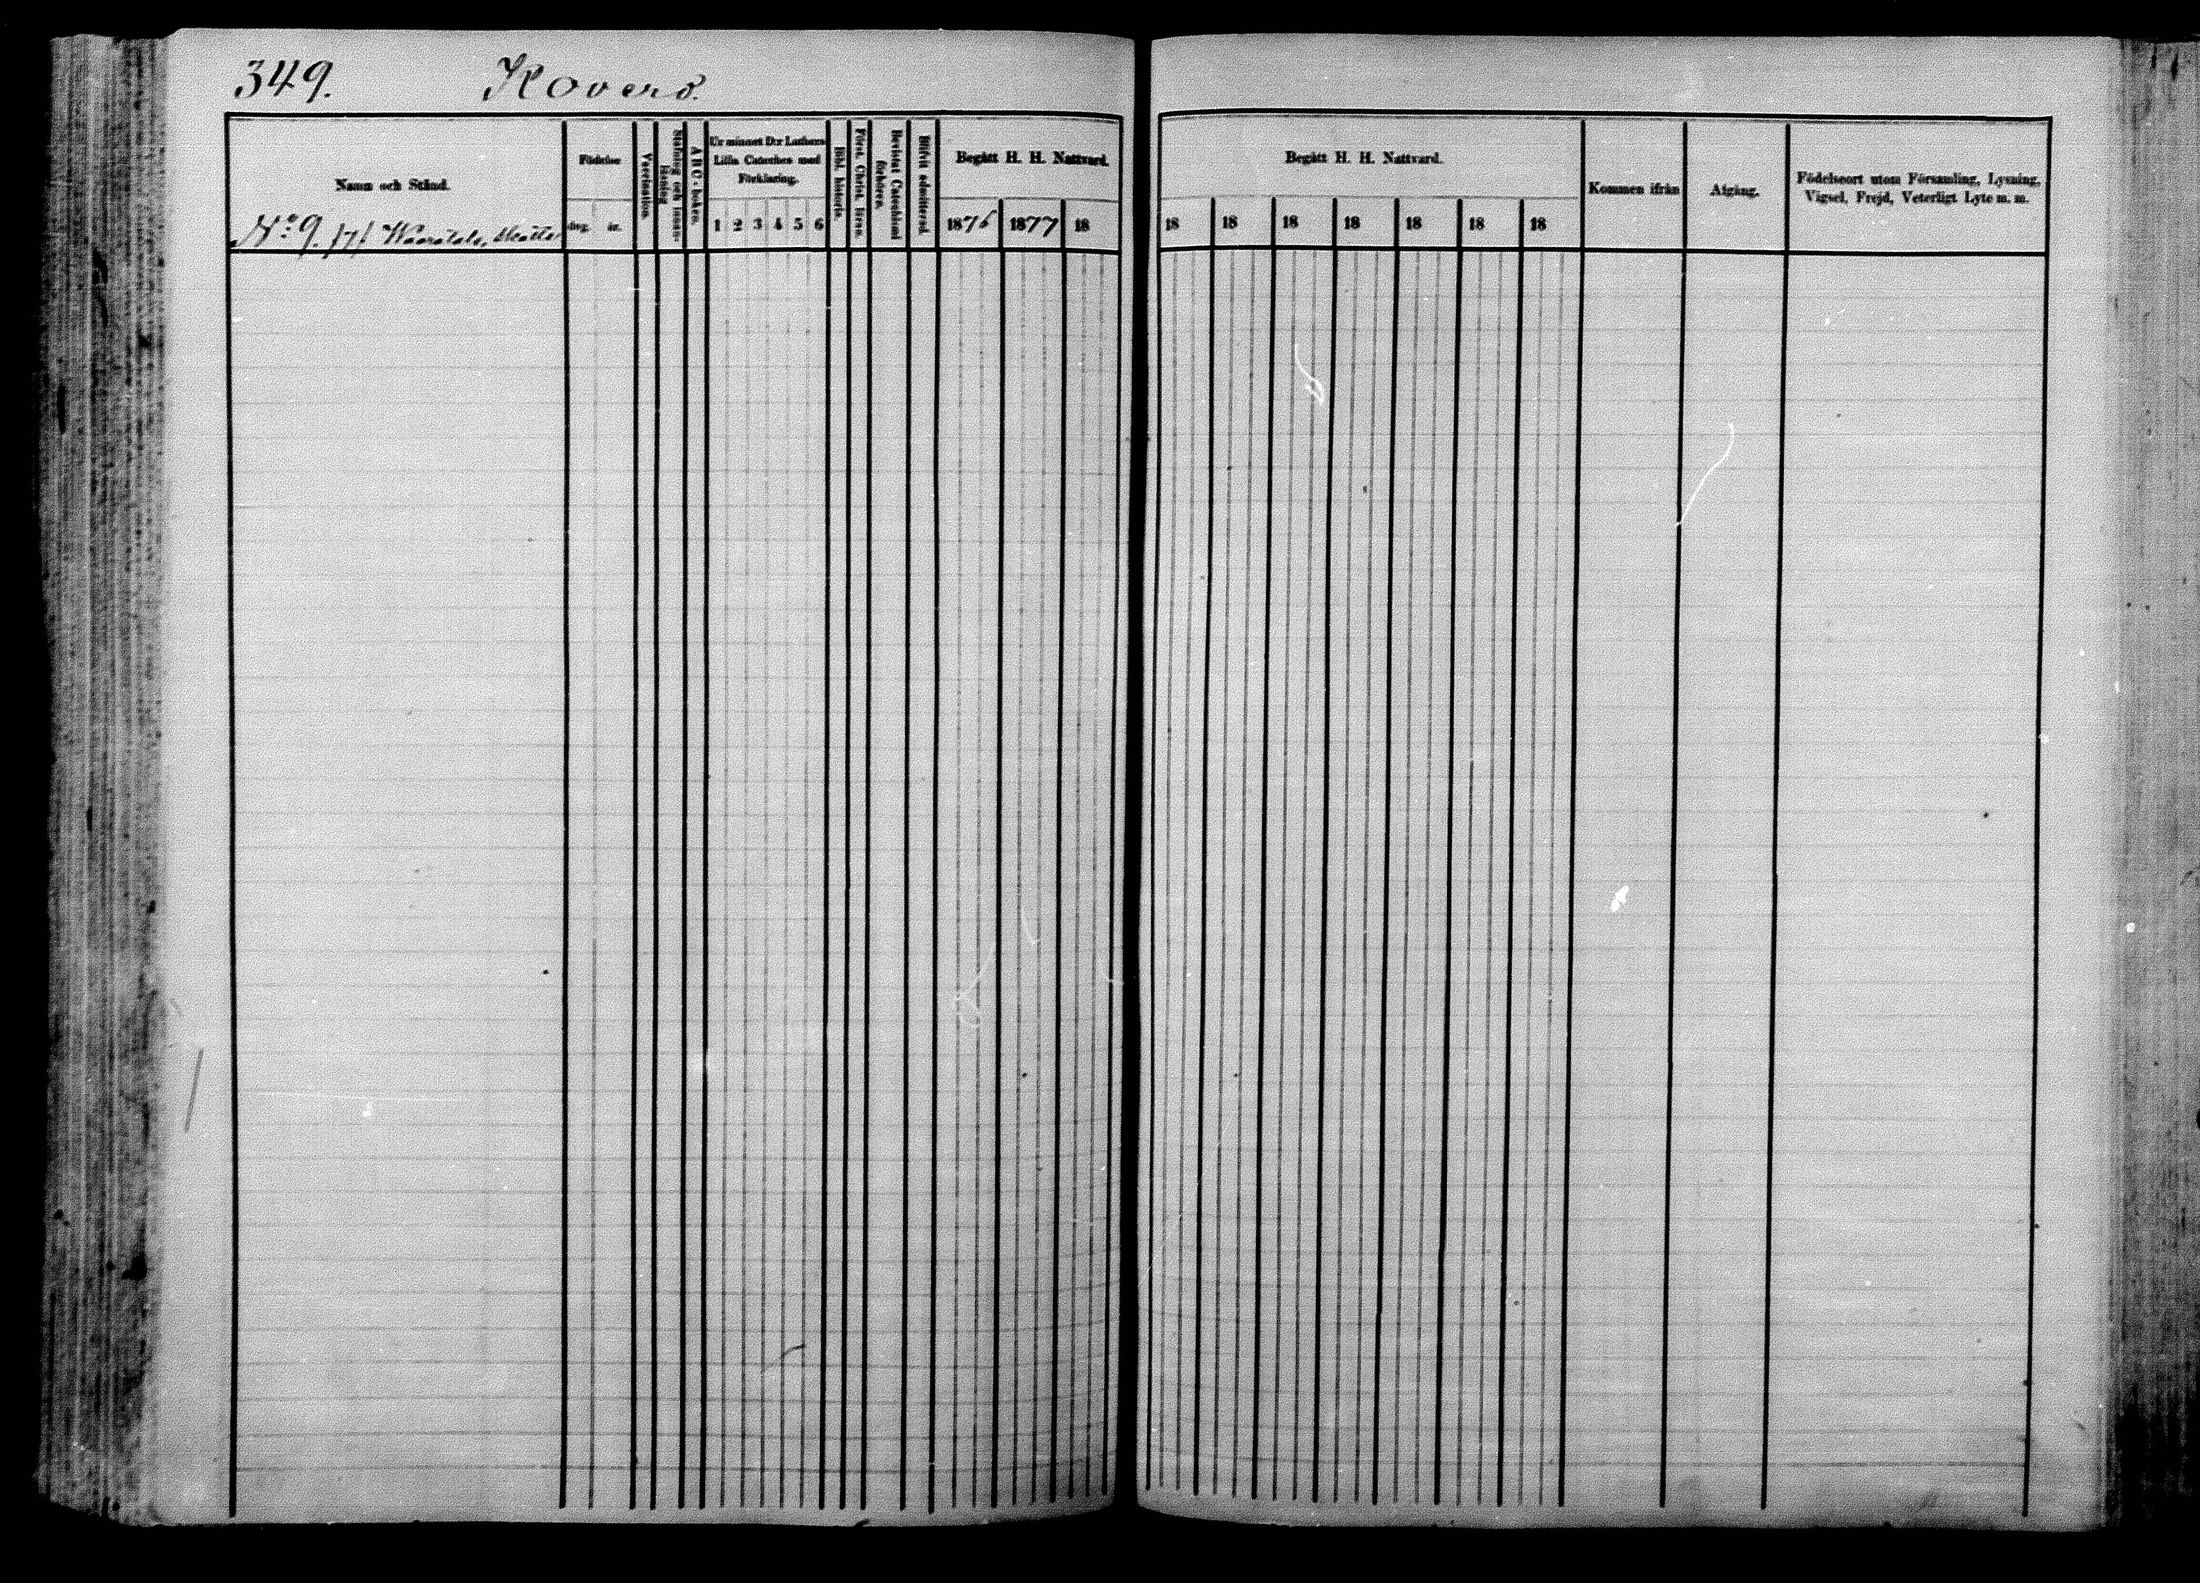 349. Koverö.
Namn och Stånd.
No 9. /7/ Waaralals, Skatte
Födelse
dag. år.
Vaccination.
Stafning och innanläsning
ABC-boken.
Ur minnet D:r Luthers Lilla Cateches med Förklaring.
1 2 3 4 5 6
Bibl. historie.
Först. Christ. läran.
Bevistat Catechismi förhören.
Blifvit admitterad.
Begått H. H. Nattvard.
1876 1877 18
Begått H. H. Nattvard.
18 18 18 18 18 18 18
Kommen ifrån
Afgång.
Födelseort utom Församling, Lysning,
Vigsel, Frejd, Veterligt Lyte m. m.